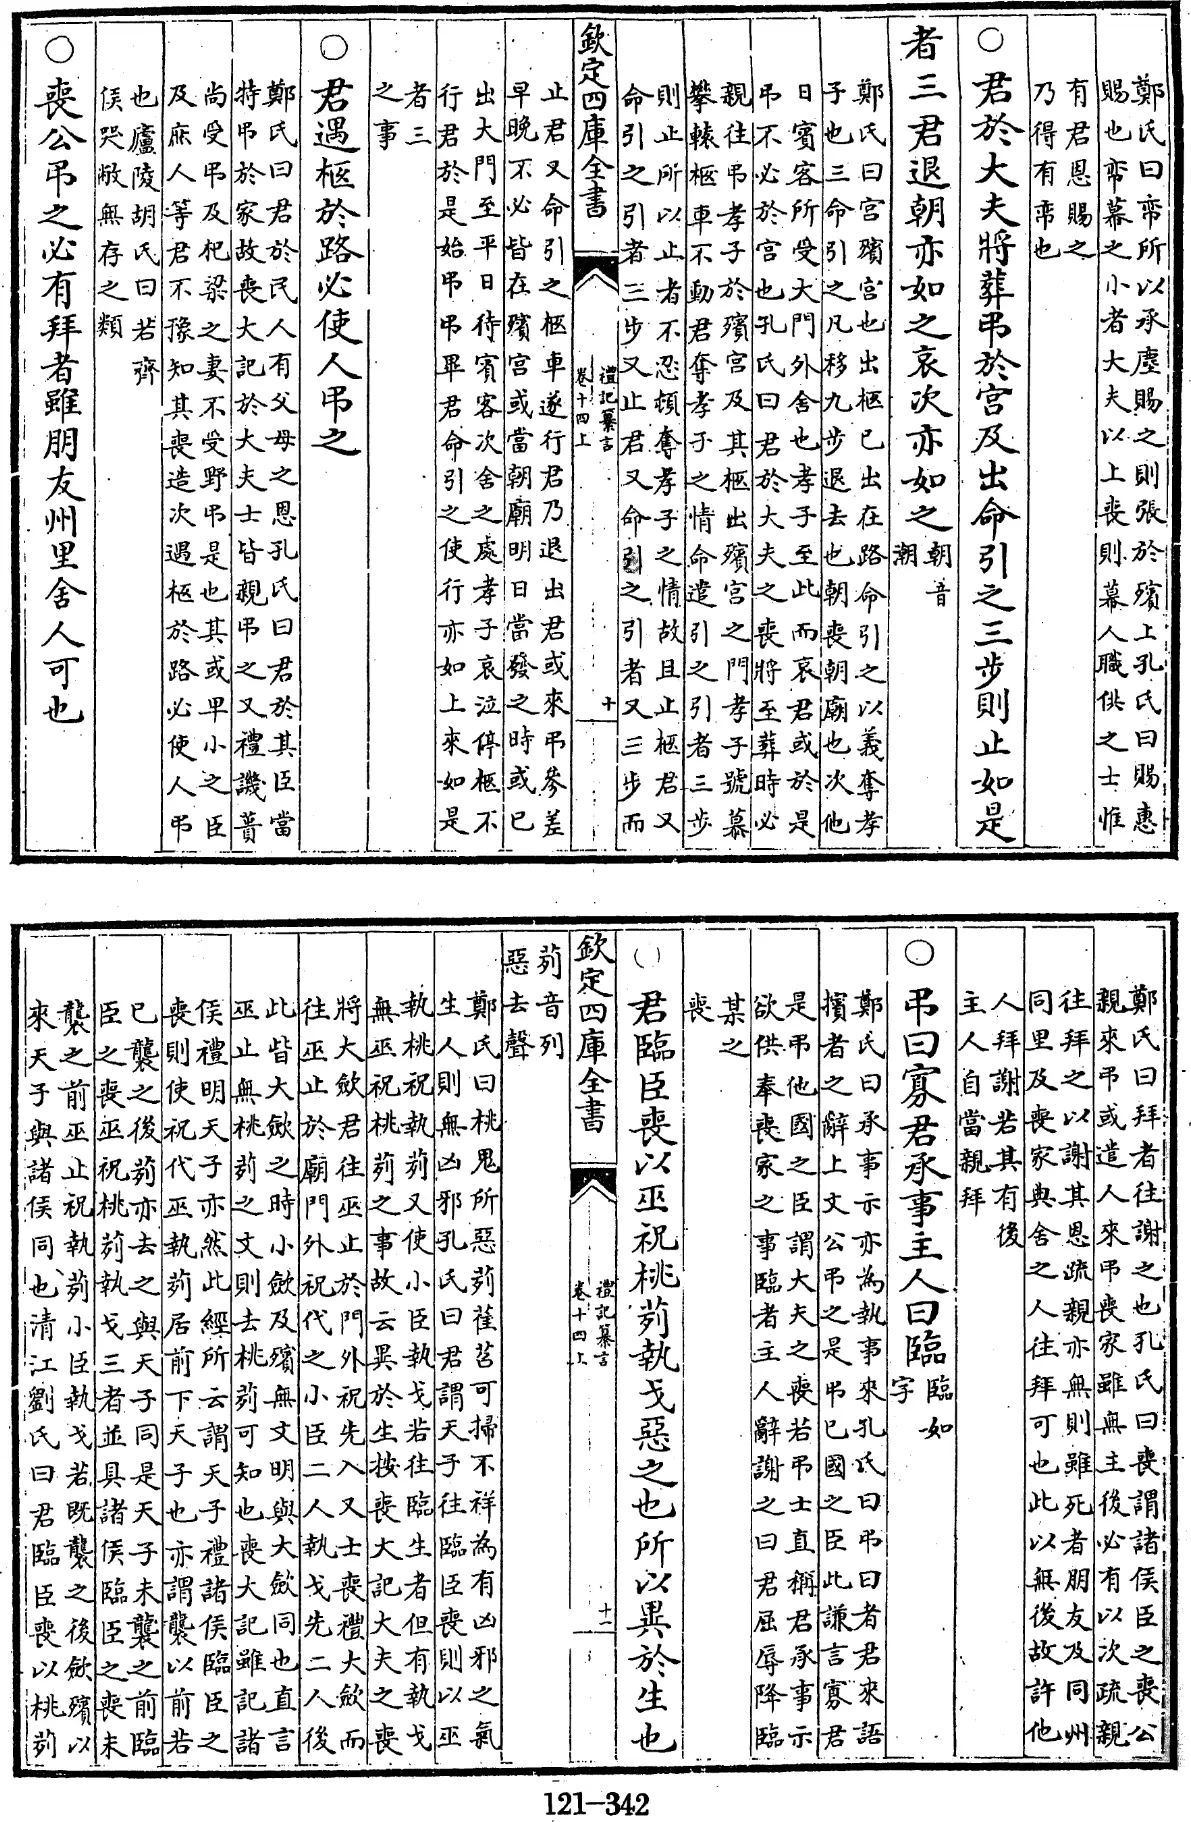 鄭氏曰帟所以承塵賜之則張於殯上孔氏曰賜惠
賜也帟幕之小者大夫以上喪則幕人職供之士惟
有君恩賜之
乃得有帟也
○君於大夫將葬弔於宮及出命引之三步則止如是
者三君退朝亦如之哀次亦如之朝音
潮
鄭氏曰宮殯宮也出柩已出在路命引之以義奪孝
子也三命引之凡移九步退去也朝喪朝廟也次他
日賓客所受大門外舍也孝子至此而哀君或於是
弔不必於宮也孔氏曰君於大夫之喪將至葬時必
親往弔孝子於殯宮及其柩出殯宮之門孝子號慕
攀轅柩車不動君奪孝子之情命遣引之引者三步
則止所以止者不忍頓奪孝子之情故且止柩君又
命引之引者三步又止君又命引之引者又三步而
欽定四庫全書
禮記纂言
卷十四上
十
止君又命引之柩車遂行君乃退出君或來弔參差
早晚不必皆在殯宮或當朝廟明日當發之時或已
出大門至平日待賓客次舍之處孝子哀泣停柩不
行君於是始弔弔畢君命引之使行亦如上來如是
者三
之事
○君遇柩於路必使人弔之
鄭氏曰君於民人有父母之恩孔氏曰君於其臣當
特弔於家故喪大記於大夫士皆親弔之又禮譏蕢
尚受弔及杞梁之妻不受野弔是也其或卑小之臣
及庶人等君不豫知其喪造次遇柩於路必使人弔
也廬陵胡氏曰若齊
侯哭敝無存之類
○喪公弔之必有拜者雖朋友州里舍人可也
鄭氏曰拜者往謝之也孔氏曰喪謂諸侯臣之喪公
親來弔或遣人來弔喪家雖無主後必有以次疏親
往拜之以謝其恩疏親亦無則雖死者朋友及同州
同里及喪家典舍之人往拜可也此以無後故許他
人拜謝若其有後
主人自當親拜
○弔曰寡君承事主人曰臨臨如
字
鄭氏曰承事示亦為執事來孔氏曰弔曰者君來語
擯者之辭上文公弔之是弔已國之臣此謙言寡君
是弔他國之臣謂大夫之喪若弔士直稱君承事示
欲供奉喪家之事臨者主人辭謝之曰君屈辱降臨
某之
喪
○君臨臣喪以巫祝桃茢執戈惡之也所以異於生也
欽定四庫全書
禮記纂言
卷十四上
十一
茢音列
惡去聲
鄭氏曰桃鬼所惡茢萑苕可掃不祥為有凶邪之氣
生人則無凶邪孔氏曰君謂天子往臨臣喪則以巫
執桃祝執茢又使小臣執戈若往臨生者但有執戈
無巫祝桃茢之事故云異於生按喪大記大夫之喪
將大斂君往巫止於門外祝先入又士喪禮大斂而
往巫止於廟門外祝代之小臣二人執戈先二人後
此皆大斂之時小斂及殯無文明與大斂同也直言
巫止無桃茢之文則去桃茢可知也喪大記雖記諸
侯禮明天子亦然此經所云謂天子禮諸侯臨臣之
喪則使祝代巫執茢居前下天子也亦謂襲以前若
已襲之後茢亦去之與天子同是天子未襲之前臨
臣之喪巫祝桃茢執戈三者並具諸侯臨臣之喪未
襲之前巫止祝執茢小臣執戈若既襲之後斂殯以
來天子與諸侯同也清江劉氏曰君臨臣喪以桃茢
121-342